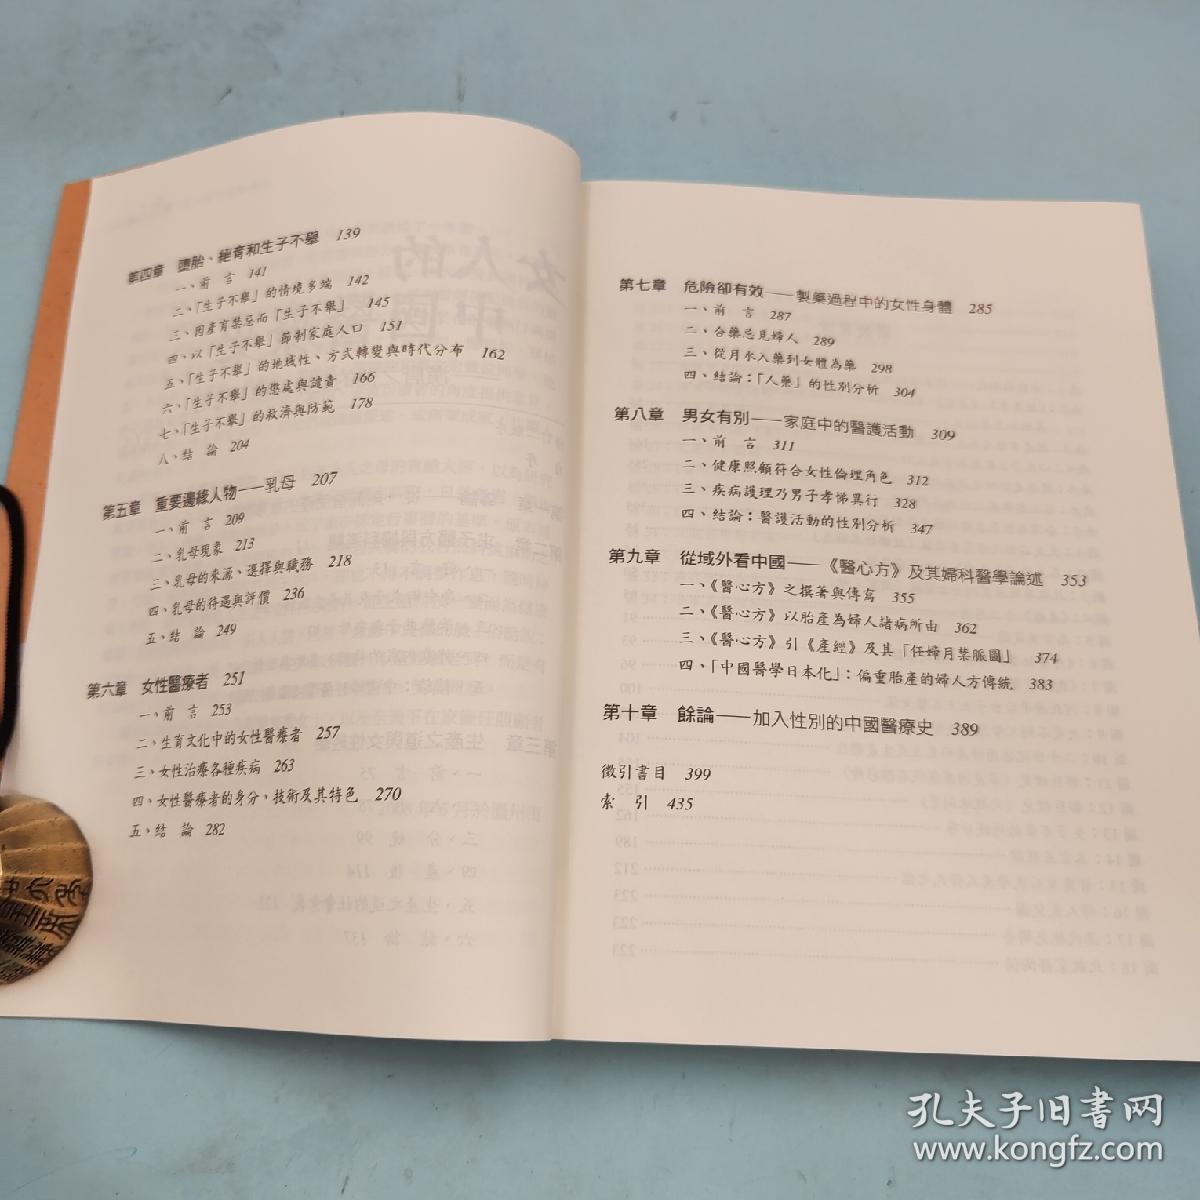 第四章　墮胎、絕育和生子不舉　139
一、前　言　141
二、「生子不舉」的情境多端　142
三、因產育禁忌而「生子不舉」　145
四、以「生子不舉」節制家庭人口　151
五、「生子不舉」的地域性、方式轉變與時代分布　162
六、「生子不舉」的懲處與譴責　166
七、「生子不舉」的救濟與防範　178
八、結　論　204
第五章　重要邊緣人物——乳母　207
一、前　言　209
二、乳母現象　213
三、乳母的來源、選擇與職務　218
四、乳母的待遇與評價　236
五、結　論　249
第六章　女性醫療者　251
一、前　言　253
二、生育文化中的女性醫療者　257
三、女性治療各種疾病　263
四、女性醫療者的身分、技術及其特色　270
五、結　論　282
第七章　危險卻有效——製藥過程中的女性身體　285
一、前　言　287
二、合藥忌見婦人　289
三、從月水入藥到女體為藥　298
四、結論：「人藥」的性別分析　304
第八章　男女有別——家庭中的醫護活動　309
一、前　言　311
二、健康照顧符合女性倫理角色　312
三、疾病護理乃男子孝悌異行　328
四、結論：醫護活動的性別分析　347
第九章　從域外看中國——《醫心方》及其婦科醫學論述　353
一、《醫心方》之撰著與傳寫　355
二、《醫心方》以胎產為婦人諸病所由　362
三、《醫心方》引《產經》及其「任婦月禁脈圖」　374
四、「中國醫學日本化」：偏重胎產的婦人方傳統　383
第十章　餘論——加入性別的中國醫療史　389
徵引書目　399
索　引　435
孔夫子旧书网
www.kongfz.com